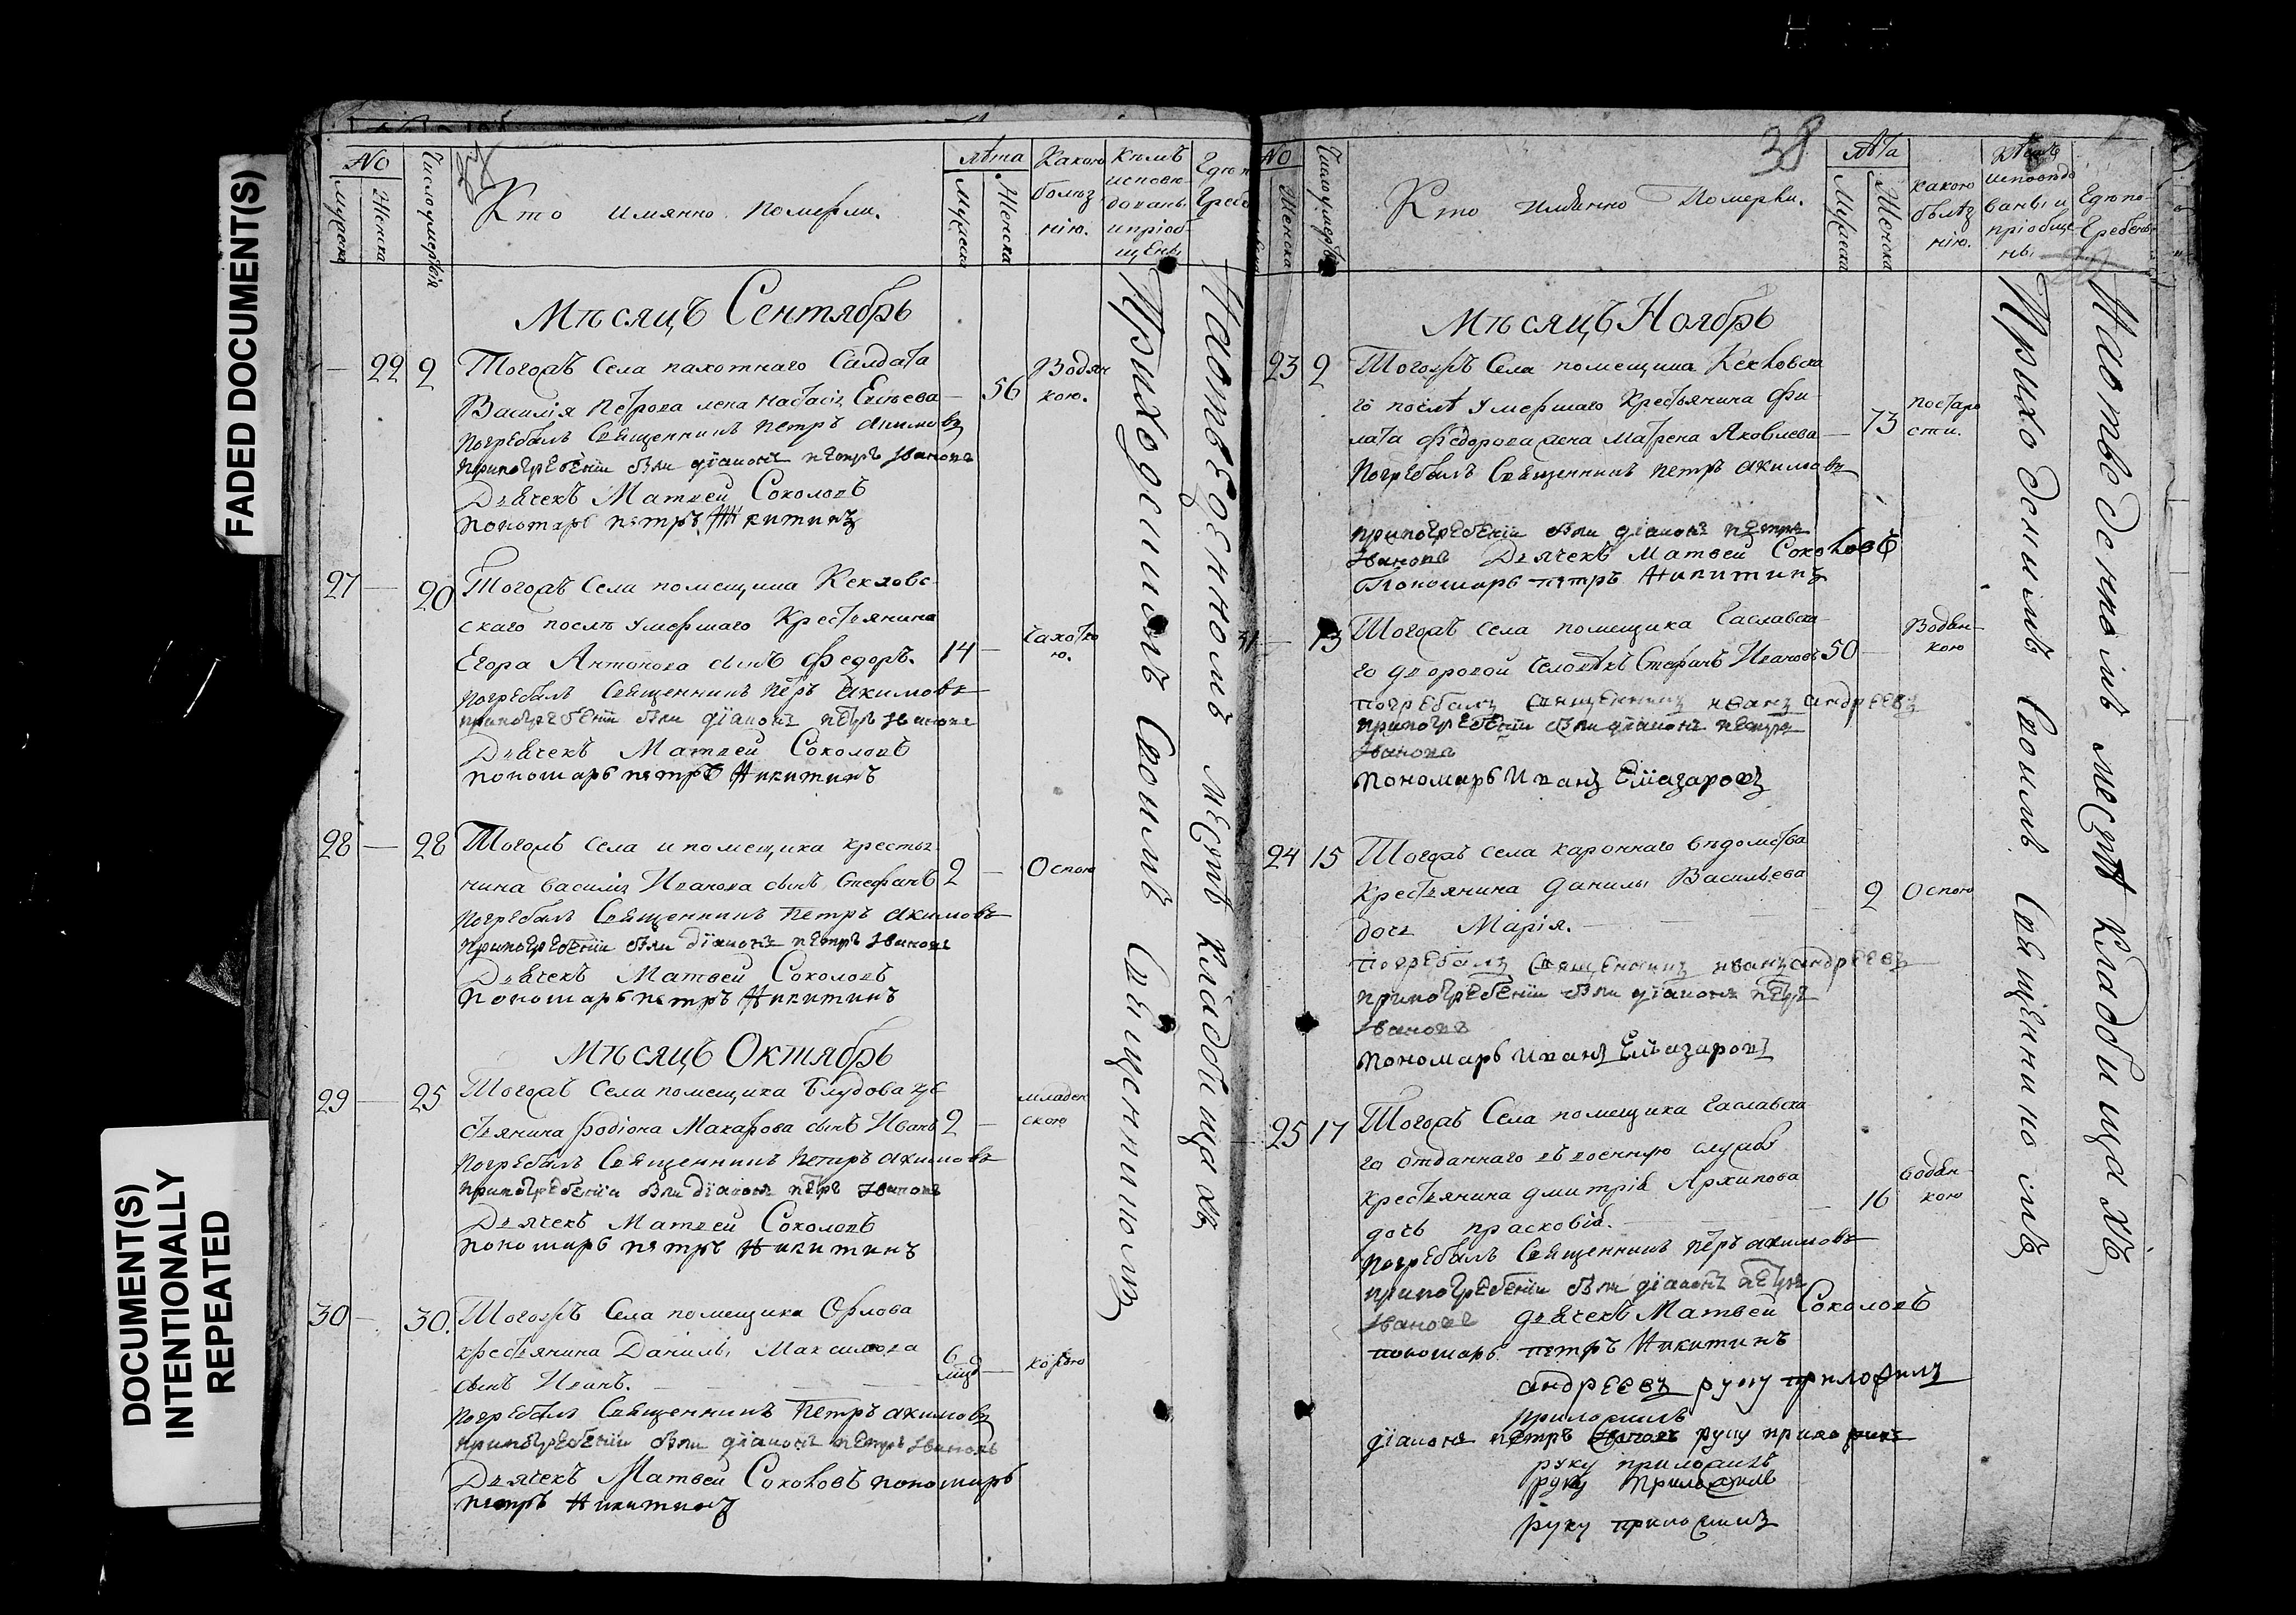 FADED DOCUMENT(S)
DOCUMENT(S)
INTENTIONALLY
REPEATED
No
Мужеска
Женска
Число умертвія
Кто имянно померли.
лѣта
Мужеска
Женска
Какою
болѣз
нію.
Кѣмъ
исповѣ-
дованы
и пріоб-
щены
Мѣсяцъ Сентябрь
22 2 Тогожъ Села пахотнаго Салдата
Василія Петрова жена Настасія Елисеева 56 Водян
кою.
Погребалъ Священникъ Петръ Акимовъ
при погребеніи были діаконъ Петръ Ивановъ
Дьячекъ Матвей Соколовъ
Пономарь Петръ Никитинъ
27 20 Тогожъ Села помещика Кекловс-
скаго послѣ умершаго Крестьянина
Егора Антонова сынъ Федоръ. 14 Чахотко
ю.
Погребалъ Священникъ Петръ Акимовъ
при погребеніи были діаконъ Петръ Ивановъ
Дьячекъ Матвей Соколовъ
Пономарь Петръ Никитинъ
28 28 Тогожъ Села и помещика крестья
нина Василія Иванова сынъ Стефанъ 2 Оспою
Погребалъ Священникъ Петръ Акимовъ
При погребеніи были діаконъ Петръ Ивановъ
Дьячекъ Матвей Соколовъ
Пономарь Петръ Никитинъ
Мѣсяцъ Октябрь
29 25 Тогожъ Села помещика Блудова кре
стьянина Родіона Макарова сынъ Иванъ 2 младен
скою
Погребалъ Священникъ Петръ Акимовъ
при погребеніи были діаконъ Петръ Ивановъ
Дьячекъ Матвей Соколовъ
Пономарь Петръ Никитинъ
30 30. Тогожъ Села помещика Орлова
крестьянина Данилы Максимова
сынъ Иванъ. 6 корью
Погребалъ Священникъ Петръ Акимовъ
при погребеніи были діаконъ Петръ Ивановъ
Дьячекъ Матвей Соколовъ пономарь
Петръ Никитинъ
Приходскимъ Своимъ Священникомъ
На отведенномъ местѣ кладбищахъ
38
No
Женска
Число умертвія
Кто имянно Померли.
Лѣта
Мужеска
Женска
какою
болѣз
нію.
Кѣмъ
исповѣдо
ваны и
пріобще
ны
Где по-
гребены
Мѣсяцъ Ноябрь
23 2 Тогожъ Села помещика Кекловска
го послѣ умершаго Крестьянина Фи-
лата Федорова жена Матрена Яковлева 73 по старо
сти.
Погребалъ Священникъ Петръ Акимовъ
при погребеніи были діаконъ Петръ
Ивановъ Дьячекъ Матвей Соколовъ
Пономарь Петръ Никитинъ
31 13 Тогожъ села помещика Гаславска
го дворовой человѣкъ Стефанъ Ивановъ 50 Водян-
кою
Погребалъ Священникъ Иванъ Андреевъ
при погребеніи были діаконъ Петръ
Ивановъ
Пономарь Иванъ Елиазаровъ
24 15 Тогожъ села каронного вѣдомства
Крестьянина Данилы Васильева 2 Оспою
дочь Марія.
Погребалъ Священникъ Иванъ Андреевъ
при погребеніи были діаконъ Петръ
Ивановъ
Пономарь Иванъ Елиазаровъ
25 17 Тогожъ Села помещика Гаславска
го отданнаго въ военную службу
крестьянина Дмитрія Архипова 16 водян-
кою
дочь Прасковія.
Погребалъ Священникъ Петръ Акимовъ
при погребеніи были діаконъ Петръ
Ивановъ Дьячекъ Матвей Соколовъ
пономарь Петръ Никитинъ
Андреевъ руку приложилъ
приложилъ
діаконъ Петръ Ивановъ руку приложилъ
руку приложилъ
руку приложилъ
руку приложилъ
Приходскимъ Своимъ Священникомъ
На отведенномъ местѣ кладбищахъ